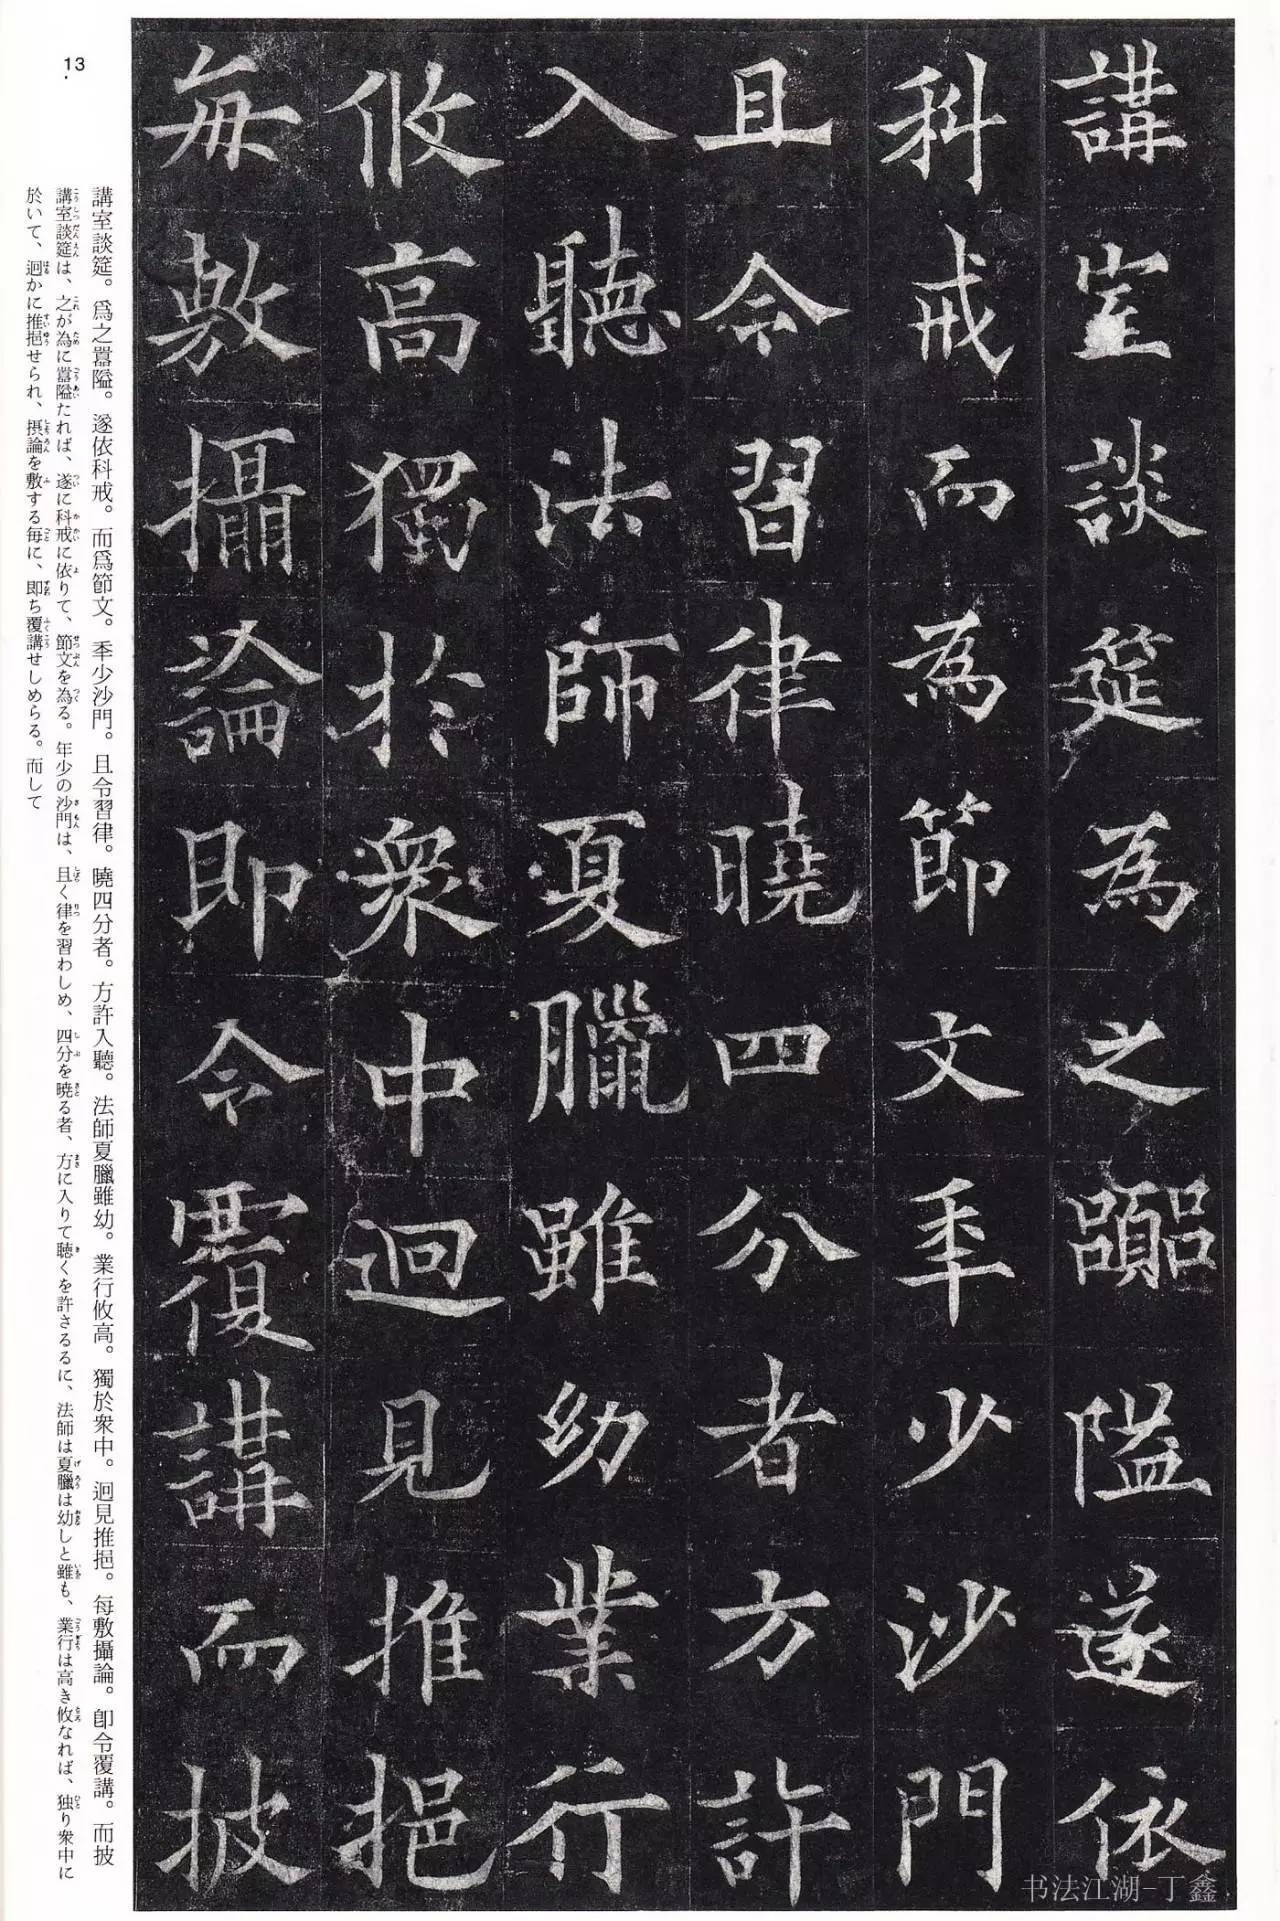 講室談筵為之囂隘遂依
科戒而為節文秊少沙門
且令習律曉四分者方許
入聽法師夏臘雖幼業行
攸高獨於衆中迥見推挹
每敷攝論即令覆講而披
講室談筵。爲之囂隘。遂依科戒。而爲節文。秊少沙門。且令習律。曉四分者。方許入聽。法師夏臘雖幼。業行攸高。獨於衆中。迥見推挹。每敷攝論。卽令覆講。而披
講室談筵は、之が為に囂隘たれば、遂に科戒に依りて、節文を為る。年少の沙門は、且く律を習わしめ、四分を暁る者、方に入りて聴くを許さるるに、法師は夏臘は幼しと雖も、業行は高き攸なれば、独り衆中に
於いて、迥かに推挹せられ、摂論を敷する毎に、即ち覆講せしめらる。而して
13
书法江湖-丁鑫